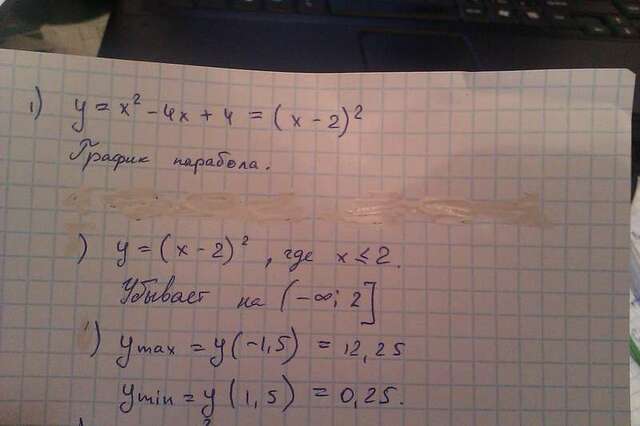 1) y = x² - 4x + 4 = (x - 2)²
График парабола.
) y = (x - 2)², где x ≤ 2.
Убывает на (-∞; 2]
') y max = y(-1,5) = 12,25
y min = y(1,5) = 0,25.